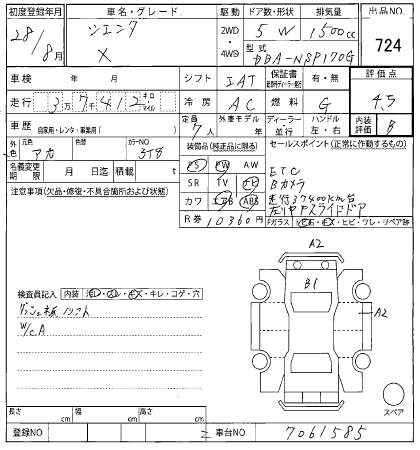 初度登録年月 車名・グレード 駆動 ドア数・形状 排気量 出品NO.
28/8月 シエンタ X 2WD・4WD 5 W 1500cc 724
型式 DBA-NSP170G
車検 年 月 シフト IAT 保証書 有・無 評価点
走行 3万7千412キロ マイル 冷房 AC 燃料 G 4.5
車歴 自家用・レンタ・事業用( ) 定員 7人 外車モデル 年 ディーラー・並行 ハンドル 左・右 内装評価 B
外色 元色 アカ 色替 カラーNO 3T8 装備品(純正品に限る) セールスポイント(正常に動作するもの)
名義変更期限 月 日迄 積載 t PS PW AW
ETC
注意事項(欠品・修復・不具合箇所および状態) SR TV ナビ Bカメラ
カワ エアB ABS 走行37400km台
R券 10360円 左リヤPスライドドア
Fガラス トビ石・キズ・ヒビ・ワレ・リペア跡
A2
B1
A2
検査員記入 内装 ヨゴレ・スレ・キズ・キレ・コゲ・穴
ダッシュ板 ソフト
W/cA
スペア
長さ cm 幅 cm 高さ cm
登録NO 車台NO 7061585